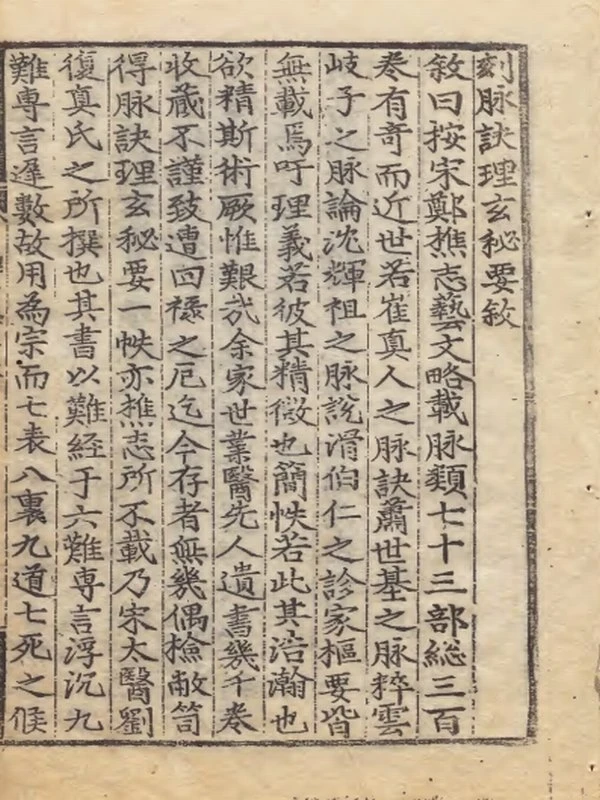 刻脉訣理玄秘要敘
敘曰按宋鄭樵志藝文略載脉類七十三部総三百
巻有奇而近世若崔真人之脉訣蕭世基之脉粹雲
岐子之脉論沈輝祖之脉說滑伯仁之診家樞要皆
無載焉吁理義若彼其精微也簡帙若此其浩瀚也
欲精斯術厥惟艱㢤余家世業醫先人遺書幾千巻
收蔵不謹致遭回祿之厄迄今存者無幾偶檢敝笥
得脉訣理玄秘要一帙亦樵志所不載乃宋太醫劉
復真氏之所撰也其書以難経于六難專言浮沉九
難専言遲數故用為宗而七表八裏九道七死之候